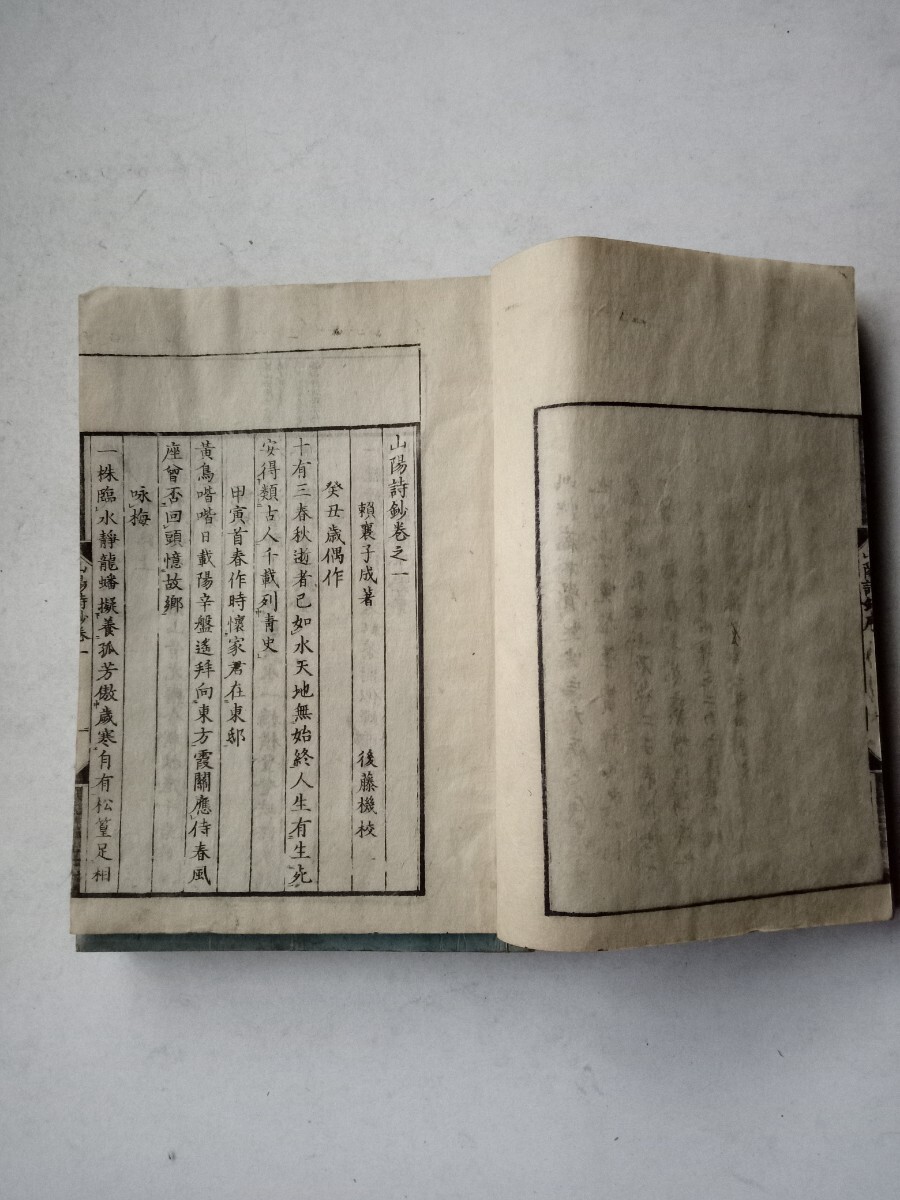 山陽詩鈔卷之一
賴襄子成著　後藤機校
癸丑歲偶作
十有三春秋逝者已如水天地無始終人生有生死
安得類古人千載列靑史
甲寅首春作時懷家君在東邸
黃鳥喈喈日載陽辛盤遙拜向東方霞關應侍春風
座曾否回頭憶故鄉
咏梅
一株臨水靜龍蟠擬養孤芳傲歲寒自有松篁足相